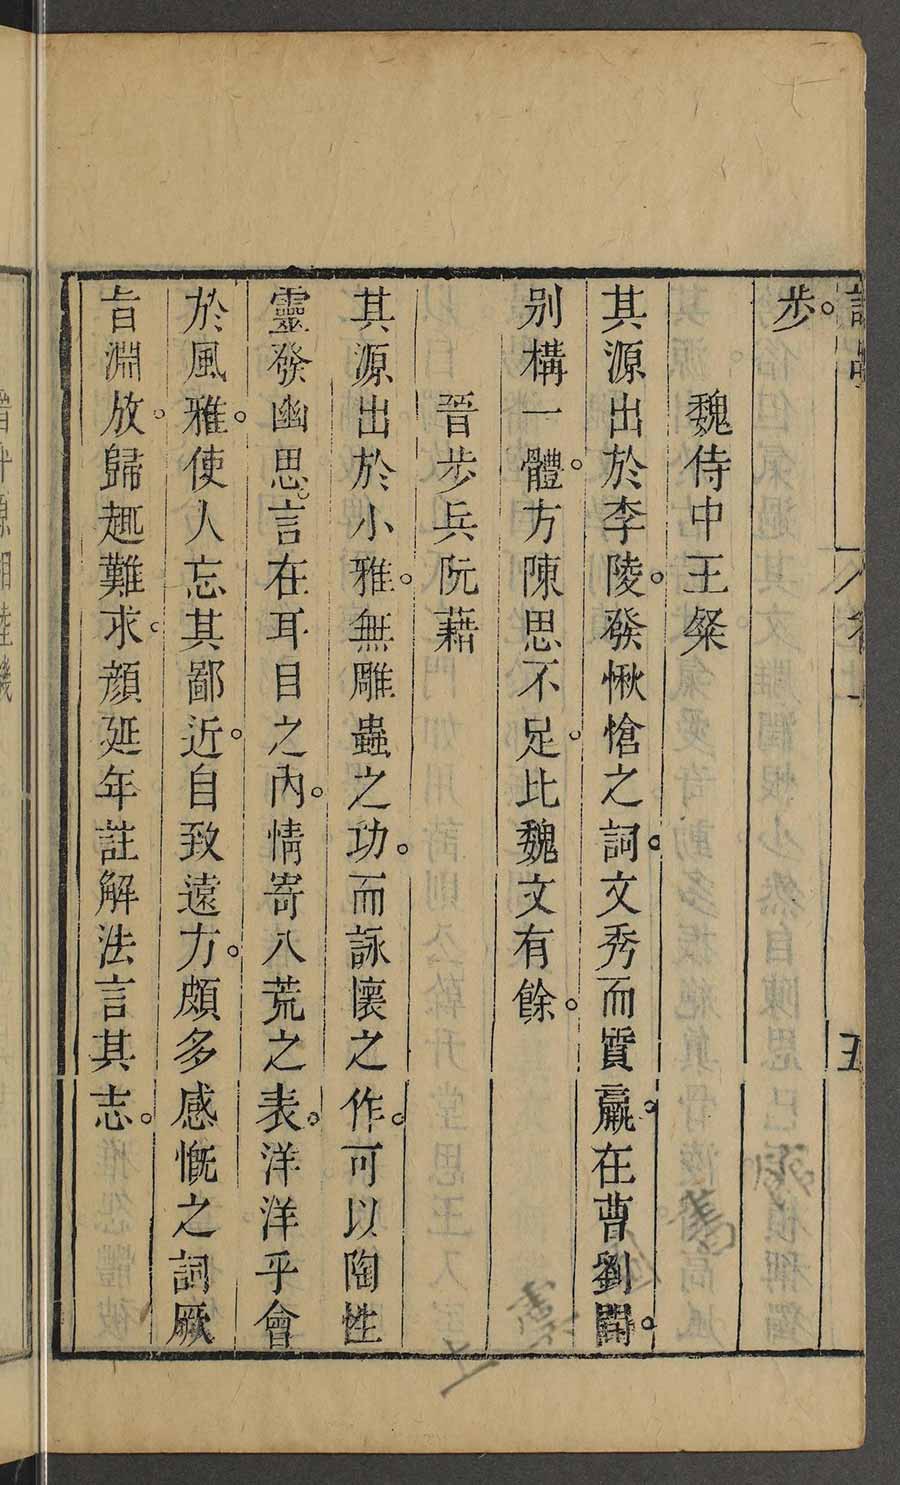 步。
魏侍中王粲
其源出於李陵。發愀愴之詞。文秀而質羸。在曹劉間。
別構一體。方陳思不足。比魏文有餘。
晉步兵阮藉
其源出於小雅。無雕蟲之功。而詠懷之作。可以陶性
靈發幽思。言在耳目之內。情寄八荒之表。洋洋乎會
於風雅。使人忘其鄙近。自致遠方。頗多感慨之詞厥
旨淵放。歸趣難求。顏延年註解法言其志。
五